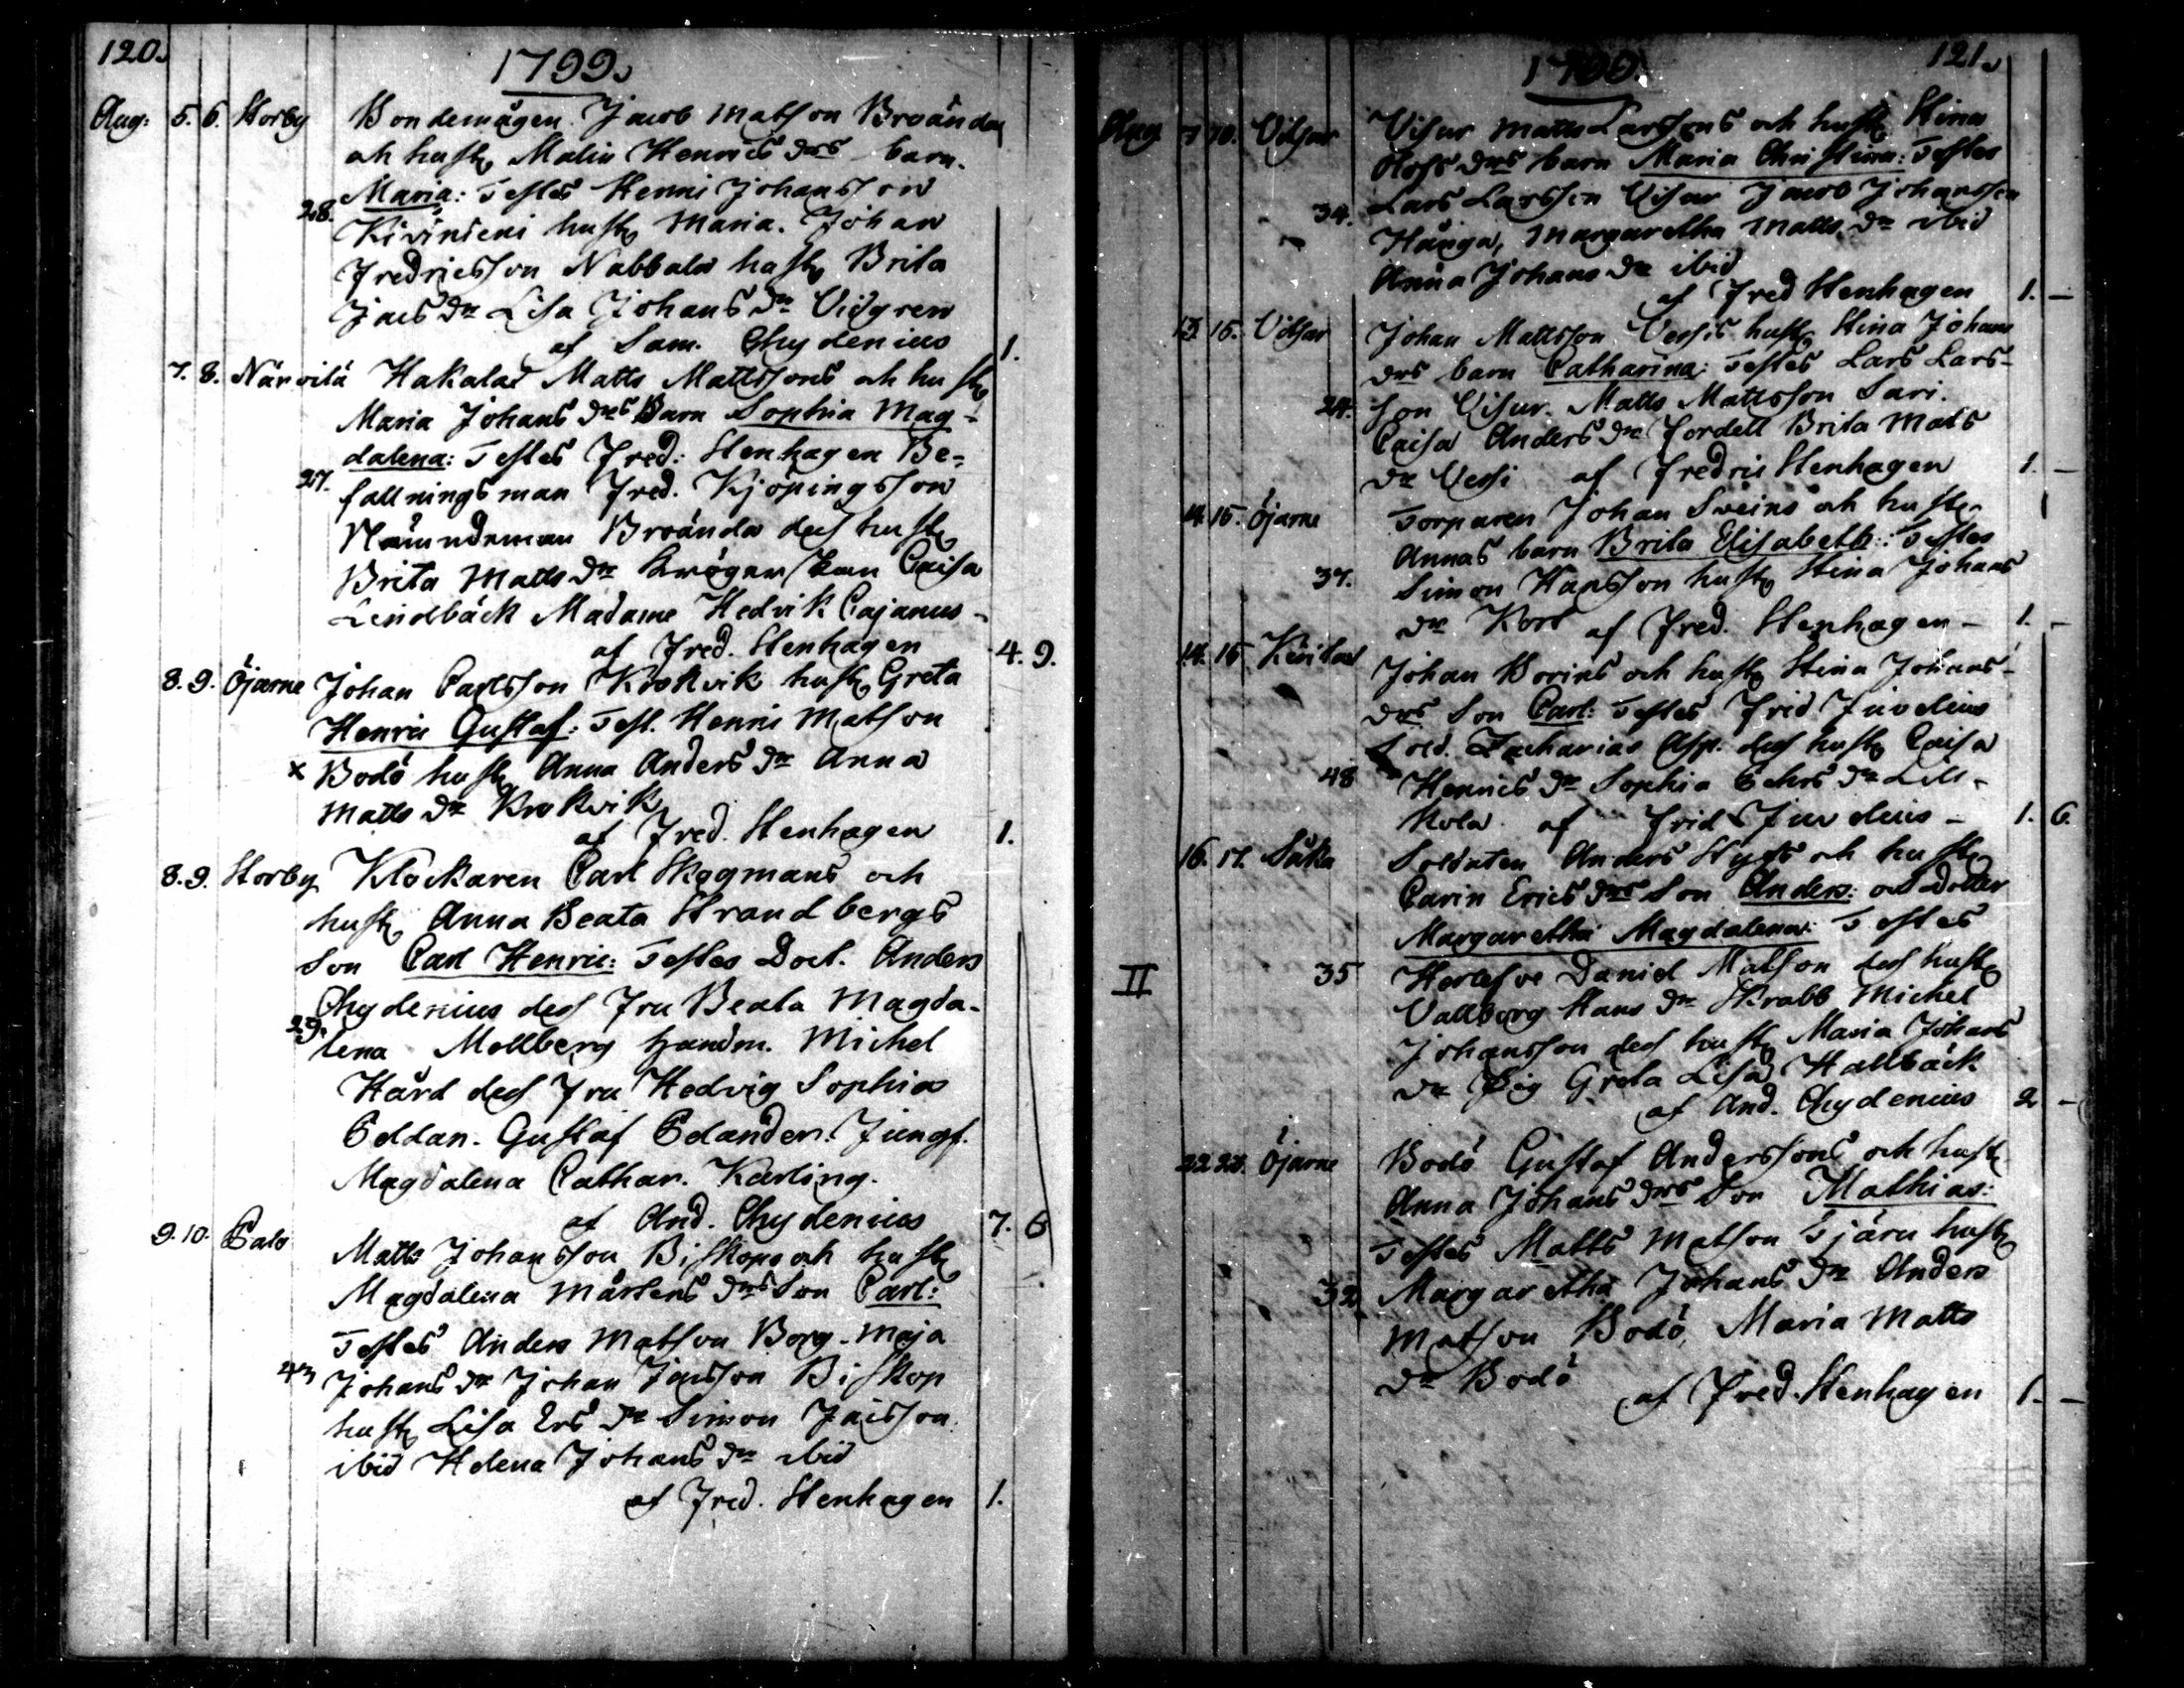 120.
1799.
Aug: 5. 6. Storby Bondemågen Jacob Matson Broända
och hustr Malin Henrics drs barn.
Maria: Testes Henric Johansson
28.
Kivinieni hustr Maria. Johan
Fredricsson Nabbala hustr Brita
Jacs dr Lisa Johans dr Vidgren
af Sam. Chydenius 1.
7. 8. Närvilä Hakalas Matts Mattssons och hustr
Maria Johans drs Barn Sophia Mag-
dalena: Testes Fred: Stenhagen Be-
27.
fallningsman Fred. Kjöpingsson
Nämndeman Broända des hustr
Brita Matts dr Caisa
Lindbäck Madame Hedvik Cajanus
af Fred. Stenhagen 4. 9.
8. 9. Öjarne Johan Carlsson Krokvik hustr Greta
Henric Gustaf: Test. Henric Matson
x Bodö hustr Anna Anders dr Anna
Matts dr Krokvik
af Fred. Stenhagen 1.
8. 9. Storby Klockaren Carl Skogmans och
hustr Anna Beata Strandbergs
Son Carl Henric: Testes Doct. Anders
Chydenius des Fru Beata Magda-
29.
lena Mellberg handm. Michel
Hård des Fru Hedvig Sophia
Gustaf Jungf.
Magdalena Cathar. Kerling.
af And. Chydenius 7. 6
9. 10. Palo Matts Johansson Biskops och hustr
Magdalena Mårtens drs Son Carl:
Testes Anders Matson Borg. Maja
43
Johans dr Johan Jacsson Biskop
hustr Lisa Ers dr Simon Jacsson
ibid Helena Johans dr ibid
af Fred. Stenhagen 1.
121.
1799.
Aug 10. Vitsar Visur Matts Larssons och hustr Stina
Olofs drs barn Maria Christina: Testes
Lars Larsson Visur Jacob Johansson
34.
Hånga, Margaretha Matts dr ibid
Anna Johans dr ibid
af Fred Stenhagen 1. —
15. Vitsar Johan Mattsson Vessis hustr Stina Johans
drs barn Catharina: Testes Lars Lars-
24.
son Visur. Matts Mattsson Sari.
Caisa Anders dr Fordell Brita Mats
dr Vessi af Fredric Stenhagen 1. —
14. 15. Öjarne Torparen Johan Sveins och hustr
Annas barn Brita Elisabeth: Testes
37.
Simon Hansson hustr Stina Johans
dr af Fred. Stenhagen — 1. —
14. 15 Johan Borins och hustr Stina Johans-
drs Son Carl: Testes Frid Juvelius
Sold. Zacharias Asp. des hustr Caisa
48
Henrics dr Sophia dr Lill-
kola af Frid Juvelius — 1. 6.
16. 17. Såka Soldaten Anders Stygs och hustr
Carin Erics drs Son Anders: och Dotter
Margaretha Magdalena: Testes
II 35
Daniel Matson des hustr
Vallborg Hans dr Skrabb Michel
Johansson des hustr Maria Johans
dr Pig Greta Lisa Hallbäck
af And. Chydenius 2 —
22 Öjarne Bodö Gustaf Anderssons och hustr
Anna Johans drs Son Mathias:
Testes Matts Matson Tjäru hustr
32
Margaretha Johans dr Anders
Matson Bodö, Maria Matts
dr Bodö
af Fred. Stenhagen 1. —